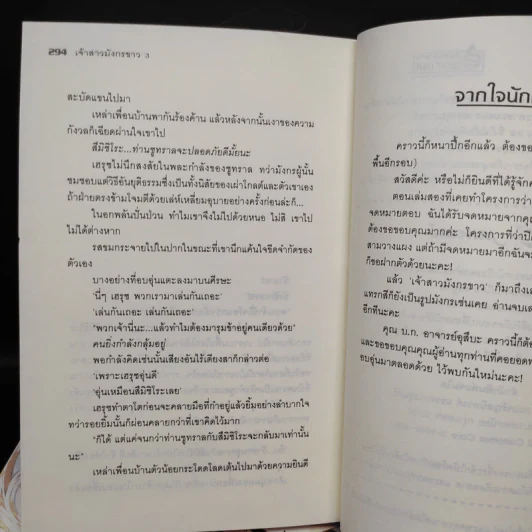 294 เจ้าสาวมังกรขาว 3
สะบัดแขนไปมา
เหล่าเพื่อนบ้านพากันร้องค้าน แล้วหลังจากนั้นเงาของความ
กังวลก็เฉียดผ่านใจเขาไป
สีมิชิโระ...ท่านชูทราลจะปลอดภัยดีมั้ยนะ
เฮรุชไม่นึกสงสัยในพละกำลังของชูทราล ทว่ามังกรผู้นั้น
ชมชอบแต่วิธีอันยุติธรรมซึ่งเป็นทั้งนิสัยของเผ่าโกลต์และตัวเขาเอง
ถ้าฝ่ายตรงข้ามโจมตีด้วยเล่ห์เหลี่ยมอุบายอย่างครั้งก่อนล่ะก็...
ในอกพลันปั่นป่วน ทำไมเขาจึงไม่ไปด้วยหนอ ไม่สิ เขาไป
ไม่ได้ต่างหาก
รสขมกระจายไปในปากในขณะที่เขานึกแค้นใจขีดจำกัดของ
ตัวเอง
บางอย่างที่อบอุ่นแตะลงมาบนศีรษะ
'นี่ๆ เฮรุช พวกเรามาเล่นกันเถอะ'
'เล่นกันเถอะ เล่นกันเถอะ'
"พวกเจ้านี่นะ...แล้วทำไมต้องมารุมข้าอยู่คนเดียวด้วย"
คนยิ่งกำลังกลุ้มอยู่
พอกำลังคิดเช่นนั้นเสียงอันไร้เดียงสาก็กล่าวต่อ
'เพราะเฮรุชอุ่นดี'
'อุ่นเหมือนสีมิชิโระเลย'
เฮรุชทำตาโตก่อนจะคลายมือที่กำอยู่แล้วยิ้มอย่างลำบากใจ
ทว่ารอยยิ้มนั้นก็ผ่อนคลายกว่าที่เขาคิดไว้มาก
"ก็ได้ แต่แค่จนกว่าท่านชูทราลกับสีมิชิโระจะกลับมาเท่านั้น
นะ"
เหล่าเพื่อนบ้านตัวน้อยกระโดดโลดเต้นไปมาด้วยความยินดี
จากใจนัก
คราวนี้ก็หนาปึ้กอีกแล้ว ต้องขอ
พื้นอีกรอบ)
สวัสดีค่ะ หรือไม่ก็ยินดีที่ได้รู้จัก
ตอนเล่มสองที่เคยทำโครงการว่า
จดหมายตอบ ฉันได้รับจดหมายจากคุณ
ต้องขอขอบคุณมากค่ะ โครงการที่ว่าปิ
สามวางแผง แต่ถ้ามีจดหมายมาอีกฉันจะ
ก็ขอฝากตัวด้วยนะคะ!
แล้ว 'เจ้าสาวมังกรขาว' ก็มาถึงเล
แทรกสียังเป็นรูปมังกรเช่นเคย อ่านจบเล
อีกทีนะคะ
คุณ บ.ก. อาจารย์อุสึบะ คราวนี้ก็ต้อ
และขอขอบคุณคุณผู้อ่านทุกท่านที่คอยอุดห
อบอุ่นมาตลอดด้วย ไว้พบกันใหม่นะคะ!